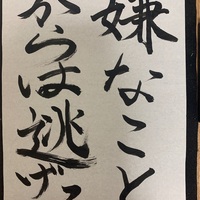 嫌なこと
からは逃げる